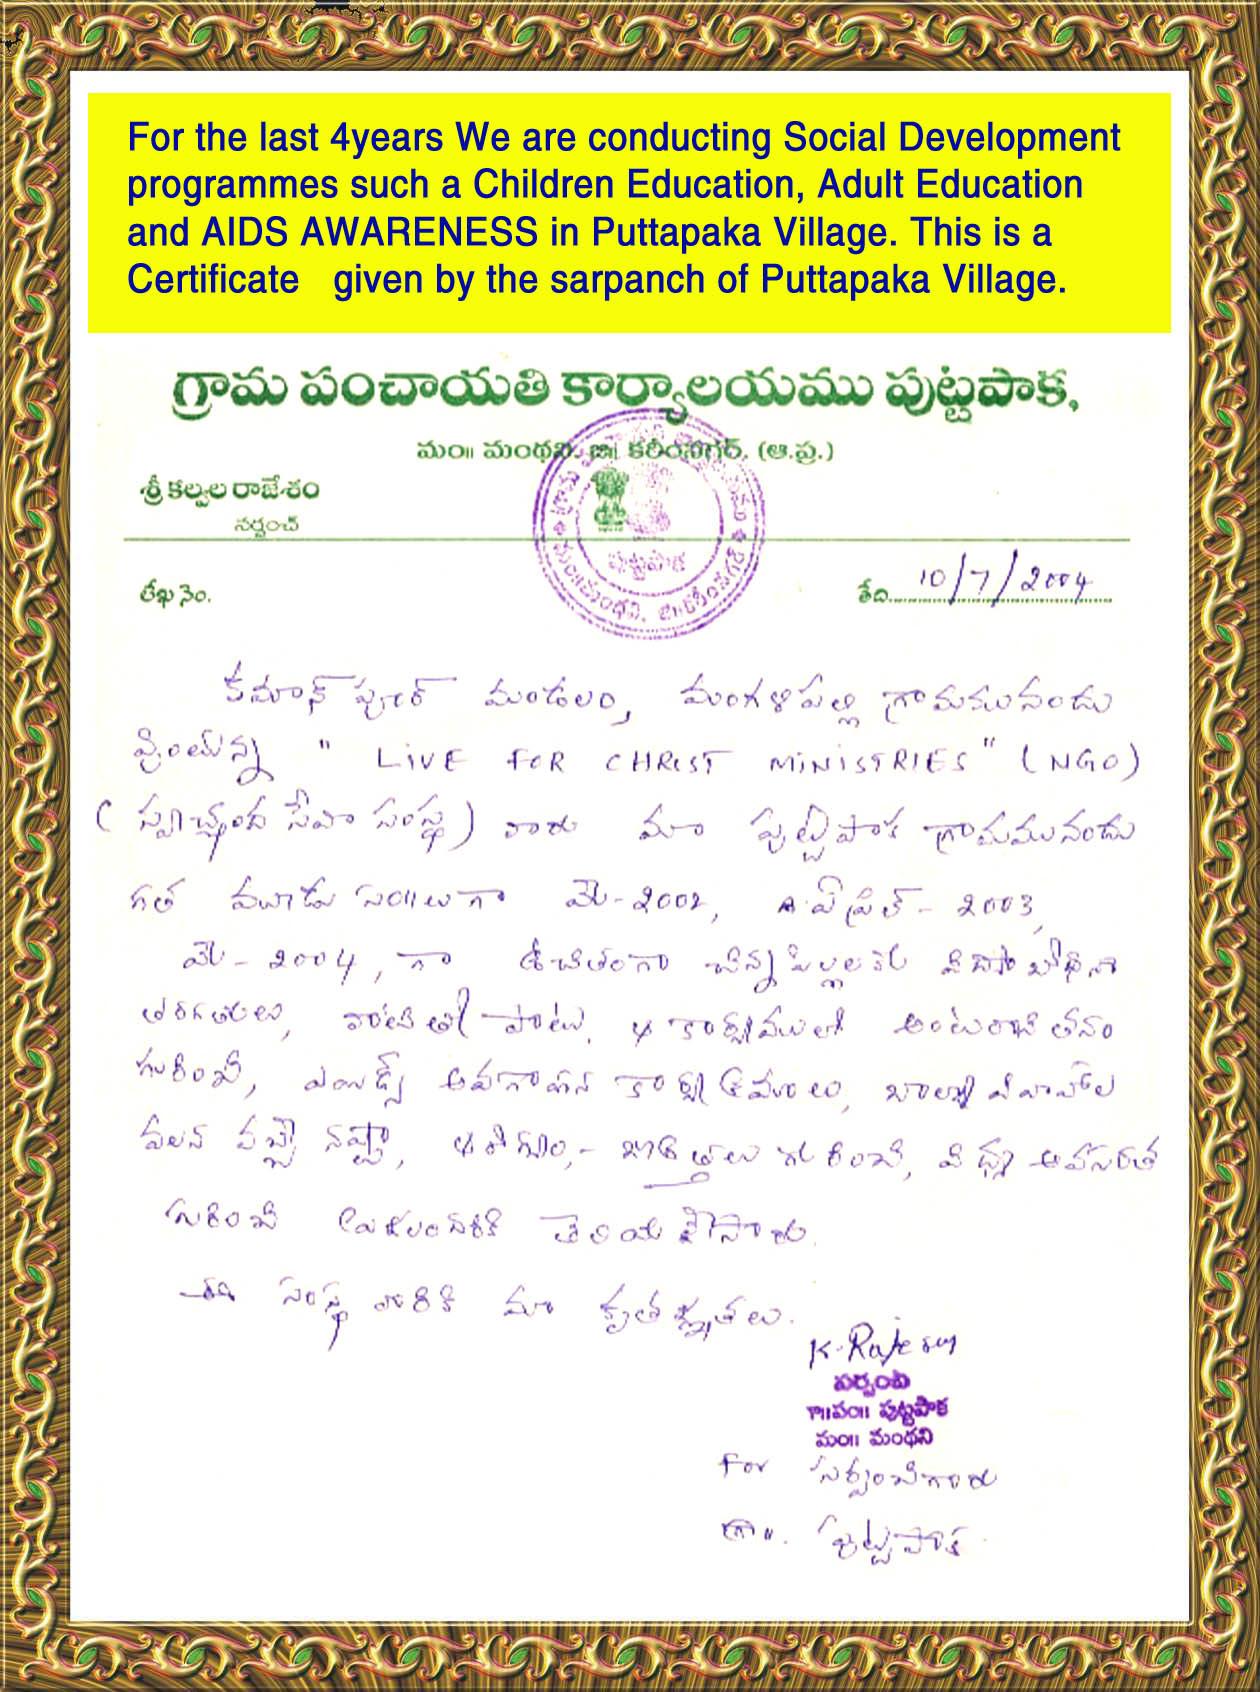 For the last 4years We are conducting Social Development
programmes such a Children Education, Adult Education
and AIDS AWARENESS in Puttapaka Village. This is a
Certificate given by the sarpanch of Puttapaka Village.
గ్రామ పంచాయతి కార్యాలయము పుట్టపాక,
మం॥ మంథని. జి॥ కరీంనగర్. (ఆ.ప్ర.)
శ్రీ కల్వల రాజేశం
సర్పంచ్
పుట్టపాక
మం॥మంథని, జి॥కరీంనగర్
లేఖ నెం.
తేది 10/7/2004
కమాన్ పూర్ మండలం, మంగళపల్లి గ్రామమునందు
"LIVE FOR CHRIST MINISTRIES" (NGO)
(స్వచ్ఛంద సేవా సంస్థ) వారు మా పుట్టపాక గ్రామమునందు
గత మూడు సం॥లుగా మె-2002, ఏప్రిల్-2003,
మె-2004, గా ఉచితంగా చిన్నపిల్లలకు విద్యా బోధనా
తరగతులు, వాటితో పాటు, అంటరానితనం
గురించి, ఎయిడ్స్ అవగాహన కార్యక్రమాలు, బాల్య వివాహాల
వలన వచ్చే నష్టా, గురించి, విద్య అవసరత
గురించి తెలియచేసారు.
ఈ సంస్థ వారికి మా కృతజ్ఞతలు.
K. Rajesam
సర్పంచి
గ్రా॥పం॥ పుట్టపాక
మం॥ మంథని
For సర్పంచిగారు
గ్రా॥. పుట్టపాక